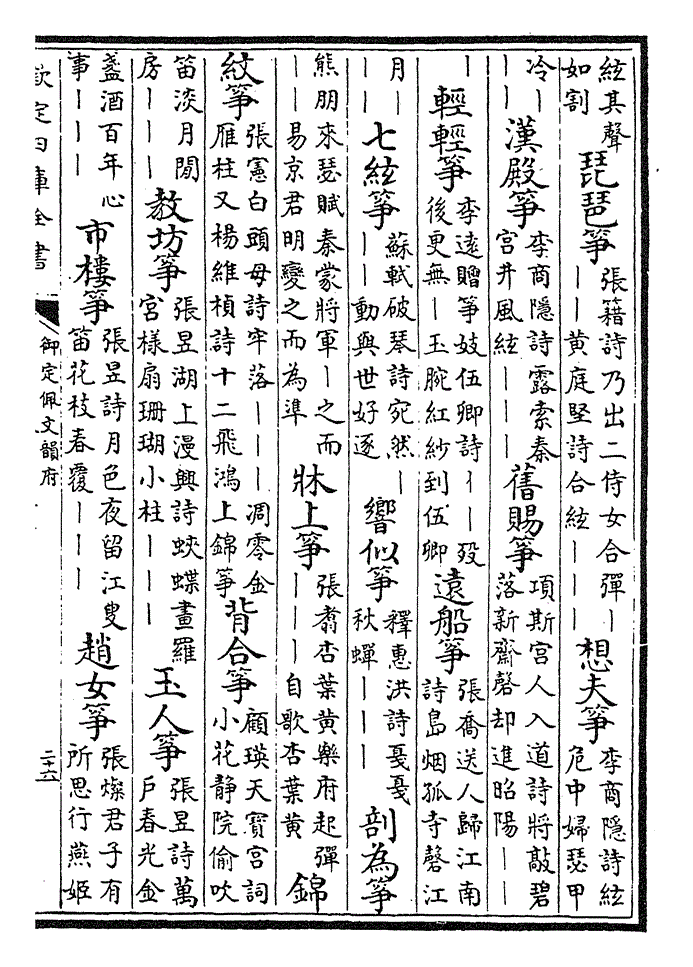 絃其聲
如割
琵琶箏
張籍詩乃出二侍女合彈—
——黃庭堅詩合絃———
想夫箏
李商隱詩絃
危中婦瑟甲
冷—
——
漢殿箏
李商隱詩露索秦
宮井風絃———
舊賜箏
項斯宮人入道詩將敲碧
落新齋磬却進昭陽——
—
輕輕箏
李遠贈箏妓伍卿詩——殁
後更無—玉腕紅紗到伍卿
遠船箏
張喬送人歸江南
詩島烟孤寺磬江
月—
——
七絃箏
蘇軾破琴詩宛然—
——動與世好逐
響似箏
釋惠洪詩戞戞
秋蟬———
剖為箏
熊朋來瑟賦秦蒙將軍—之而
——易京君明變之而為準
牀上箏
張翥杏葉黃樂府起彈
———自歌杏葉黃
錦
紋箏
張憲白頭母詩牢落———凋零金
雁柱又楊維楨詩十二飛鴻上錦箏
背合箏
顧瑛天寶宮詞
小花静院偷吹
笛淡月閒
房———
教坊箏
張昱湖上漫興詩蛺蝶畫羅
宮樣扇珊瑚小柱———
玉人箏
張昱詩萬
戶春光金
盞酒百年心
事———
市樓箏
張昱詩月色夜留江叟
笛花枝春覆———
趙女箏
張燦君子有
所思行燕姬
欽定四庫全書
御定佩文韻府
二十六